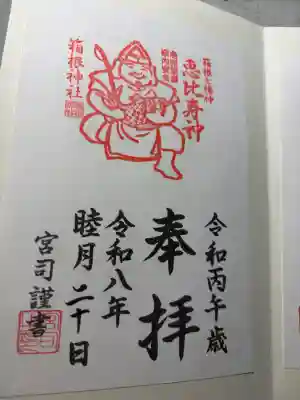 箱根七福神
恵比寿神
箱根神社
令和丙午歳
奉拝
令和八年
睦月二十日
宮司謹書